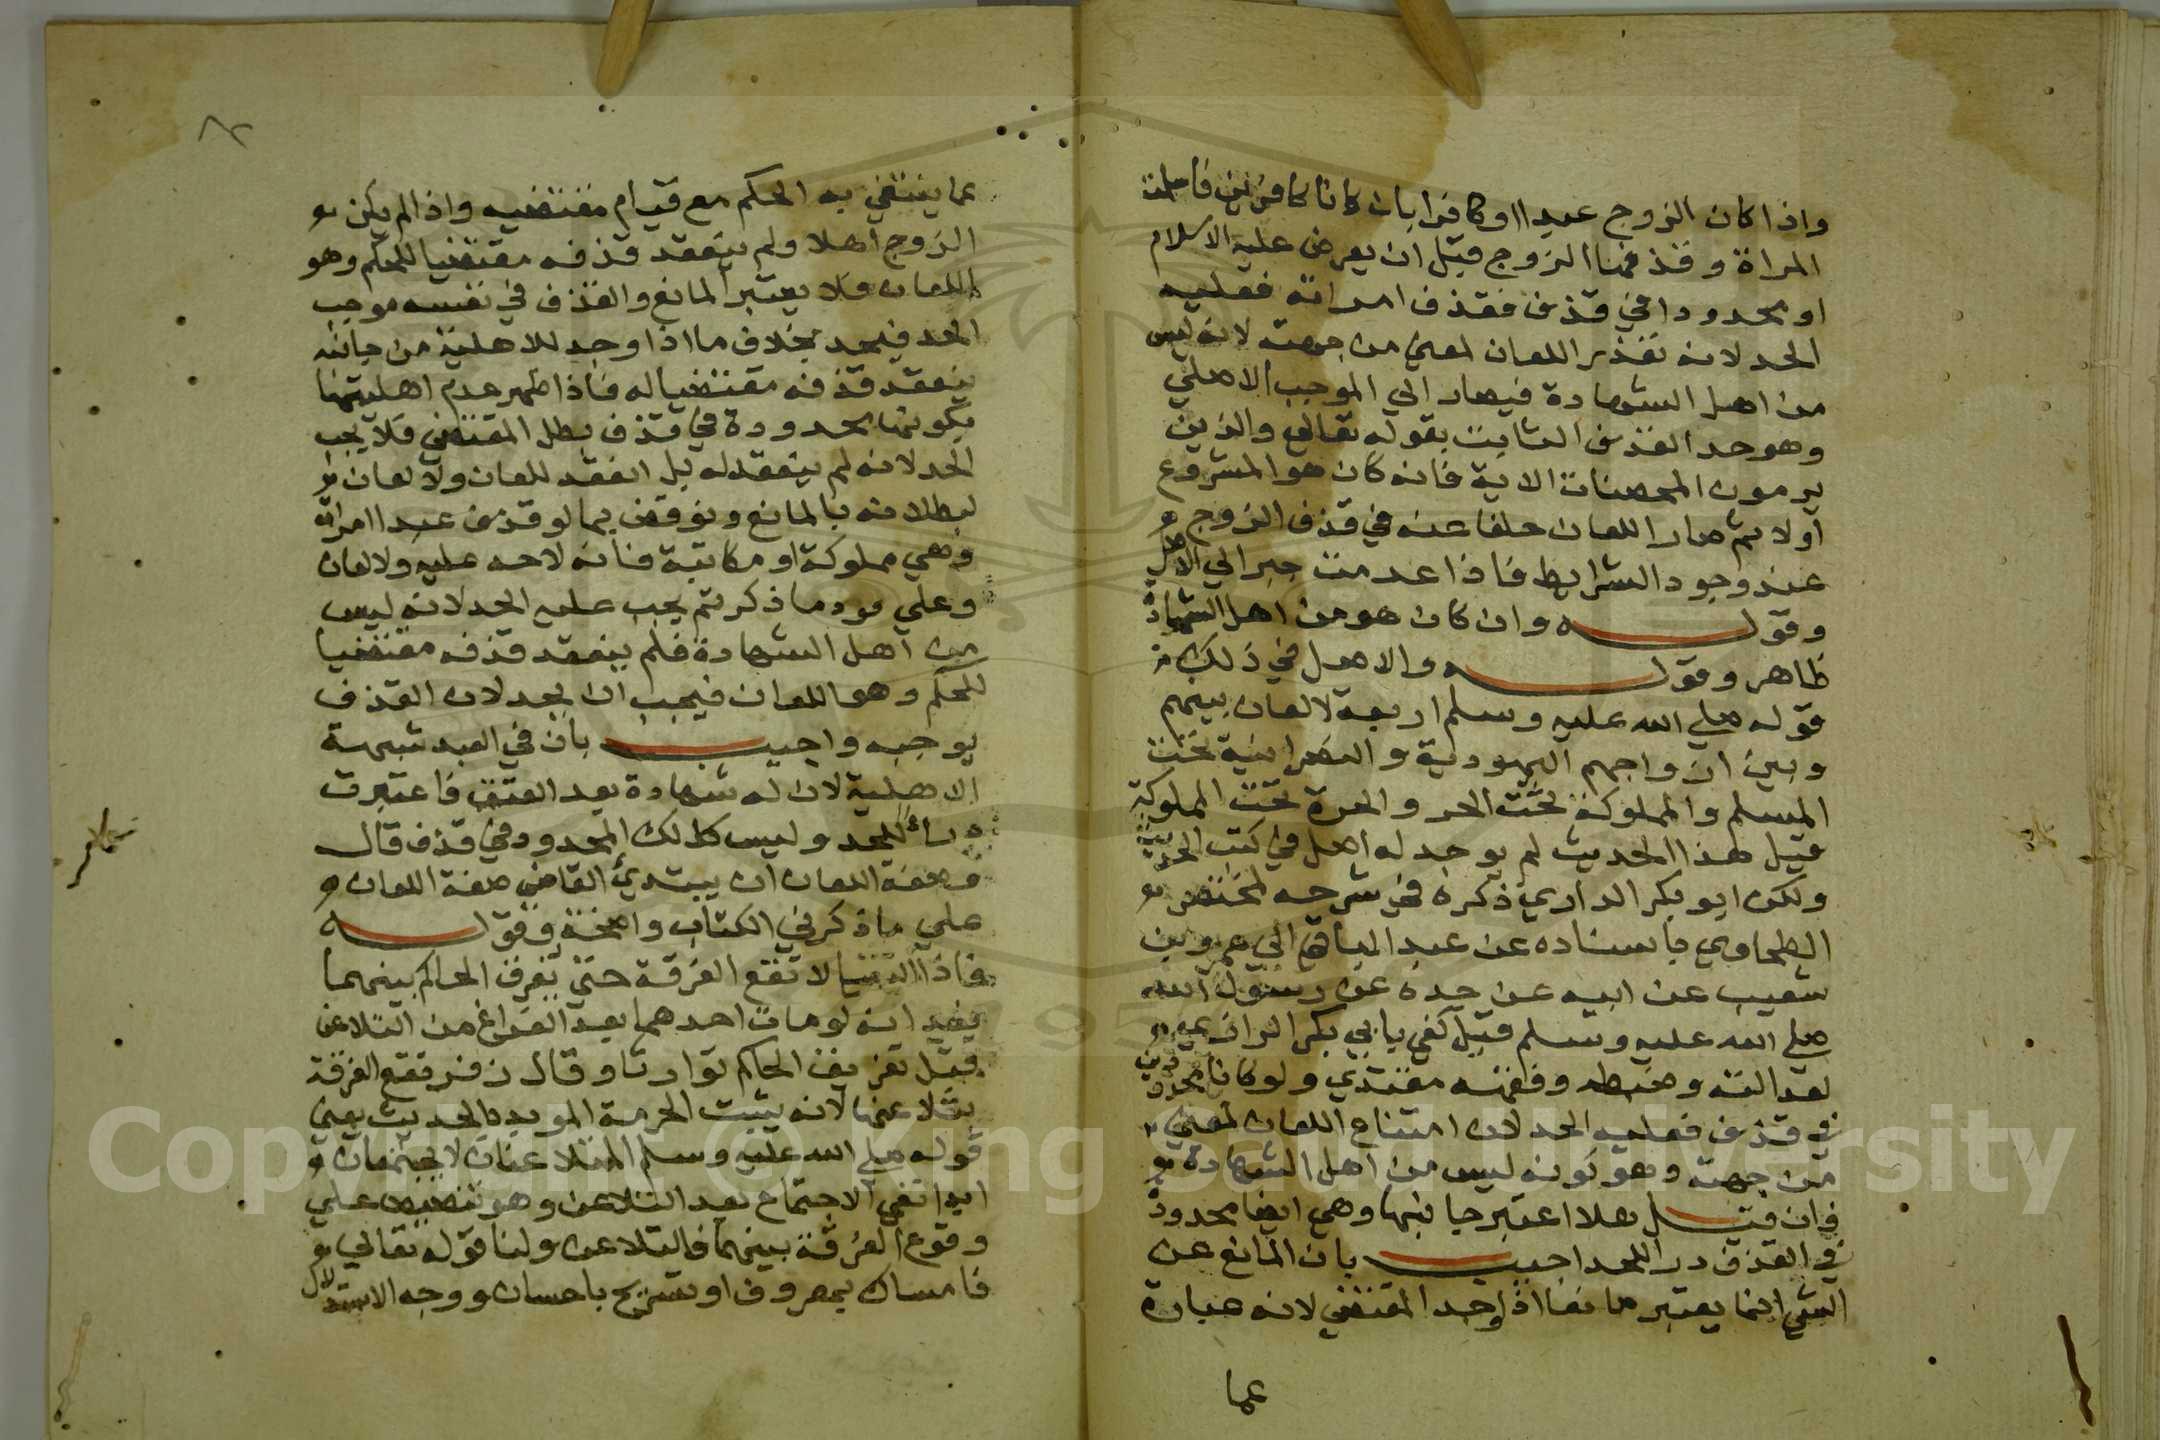 واذا كان الزوج عبدا او كافرا بان كانا كافرين فاسلمت
المراة وقذفها الزوج قبل ان يعرض عليه الاسلام
او محدودا في قذف فقذف امراته فعليه
الحد لانه تعذر اللعان لمعنى من جهته لانه ليس
من اهل الشهادة فيصار الي الموجب الاصلي
وهو حد القذف الثابت بقوله تعالى والذين
يرمون المحصنات الاية فانه كان هو المشروع
اولا ثم صار اللعان خلفا عنه في قذف الزوج
عند وجود الشرايط فاذا عدمت صير الي الاصل
وقوله وان كان هو من اهل الشهادة
ظاهر وقوله والاصل في ذلك
قوله صلي الله عليه وسلم اربعة لا لعان بينهم
وبين ازواجهم اليهودية والنصرانية تحت
المسلم والمملوكة تحت الحر والحرة تحت المملوك
قيل هذا الحديث لم يوجد له اصل في كتب الحديث
ولكن ابو بكر الداري ذكره في شرحه لمختصر
الطحاوي باسناده عن عبد الباقي الي عمرو بن
شعيب عن ابيه عن جده عن رسول الله
صلي الله عليه وسلم قيل كفي بابي بكر الرازي
لعدالته وضبطه وفقهه مقتدي ولو كانا محدودين
في قذف فعليه الحد لان امتناع اللعان لمعني
من جهته وهو كونه ليس من اهل الشهادة
فان قيل هلا اعتبر جانبها وهي ايضا محدودة
في القذف درا للحد اجيب بان المانع عن
الشي انما يعتبر مانعا اذا وجد المقتضي لانه عبارة
عما
عما ينتفي به الحكم مع قيام مقتضيه واذا لم يكن
الزوج اهلا ولم ينعقد قذفه مقتضيا للحكم وهو
اللعان فلا يعتبر المانع والقذف في نفسه موجب
الحد فيحد بخلاف ما اذا وجد للاهلية من جانبه
ينعقد قذفه مقتضيا له فاذا ظهر عدم اهليتها
بكونها محدودة في قذف بطل المقتضي فلا يجب
الحد لانه لم ينعقد له بل انعقد للعان ولا لعان
لبطلانه بالمانع ونوقض بما لو قذف عبد امراته
وهي مملوكة او مكاتبة فانه لا حد عليه ولا لعان
وعلي مود ما ذكرتم يجب عليه الحد لانه ليس
من اهل الشهادة فلم ينعقد قذفه مقتضيا
للحكم وهو اللعان فيجب ان يحد لان القذف
يوجبه واجيب بان في العبد شبهة
الاهلية لان له شهادة بعد العتق فاعتبرت
درأ للحد وليس كذلك المحدود في قذف قال
وصفة اللعان ان يبتدئ القاضي صفة اللعان
علي ما ذكر في الكتاب واضحة وقوله
فاذا التعنا لا تقع الفرقة حتي يفرق الحاكم بينهما
يفيد انه لو مات احدهما بعد الفراغ من التلاعن
قبل تفريق الحاكم توارثا وقال زفر تقع الفرقة
بتلاعنهما لانه يثبت الحرمة الموبدة بالحديث يعني
قوله صلي الله عليه وسلم المتلاعنان لا يجتمعان
ابدا نفي الاجتماع بعد التلاعن وهو تنصيص علي
وقوع الفرقة بينهما بالتلاعن ولنا قوله تعالي
فامساك بمعروف او تسريح باحسان ووجه الاستدلال
Copyright © King Saud University